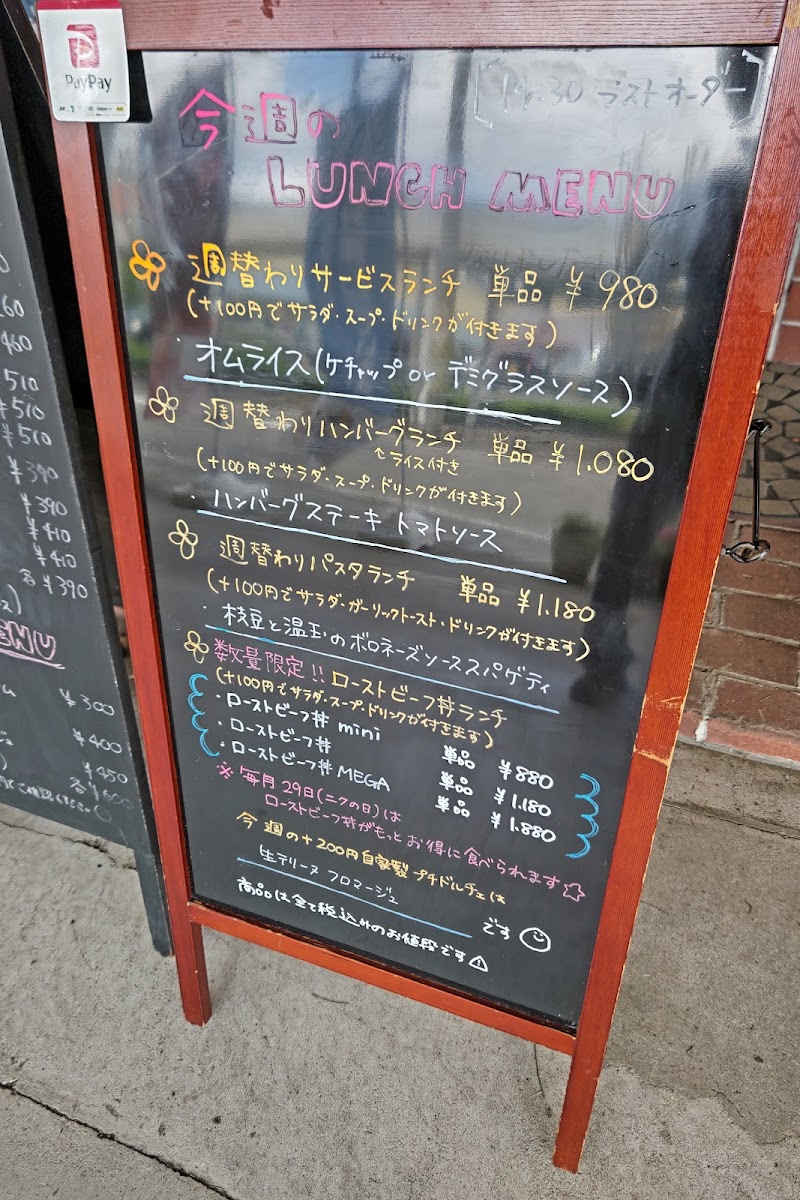 PayPay
[14:30 ラストオーダー]
今週の
LUNCH MENU
週替わりサービスランチ 単品 ¥980
(+100円でサラダ・スープ・ドリンクが付きます)
・オムライス(ケチャップ or デミグラスソース)
週替わりハンバーグランチ 単品 ¥1.080
↑ライス付き
(+100円でサラダ・スープ・ドリンクが付きます)
・ハンバーグステーキ トマトソース
週替わりパスタランチ 単品 ¥1.180
(+100円でサラダ・ガーリックトースト・ドリンクが付きます)
・枝豆と温玉のボロネーズソーススパゲティ
数量限定!! ローストビーフ丼ランチ
(+100円でサラダ・スープ・ドリンクが付きます)
・ローストビーフ丼 mini 単品 ¥880
・ローストビーフ丼 単品 ¥1.180
・ローストビーフ丼 MEGA 単品 ¥1.880
※毎月29日(ニクの日)は
ローストビーフ丼がもっとお得に食べられます☆
今週の+200円自家製プチドルチェは
生テリーヌ フロマージュ
です
商品は全て税込みのお値段です⚠
460
510
¥510
¥510
¥390
¥390
¥410
¥410
各¥390
ENU
¥300
¥400
¥450
各¥600